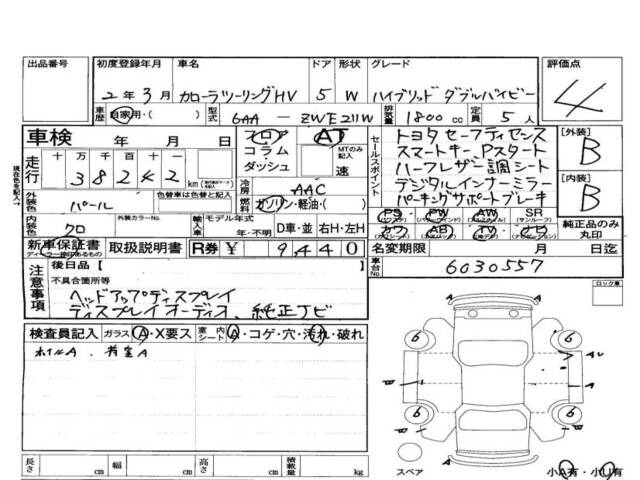 出品番号 初度登録年月 車名 ドア 形状 グレード 評価点
2年3月 カローラツーリングHV 5 W ハイブリッド ダブルバイビー 4
車歴 自家用・( ) 型式 6AA － ZWE211W 排気量 1800 cc 定員 5 人
車検 年 月 日 フロア AT セールスポイント トヨタセーフティセンス [外装]
走行 十 万 千 百 十 一 コラム MTのみ記入 スマートキー、Pスタート B
3 8 2 km ダッシュ 速 ハーフレザー調シート
外装色 パール 色替車は色替と記入 冷房 AAC デジタルインナーミラー [内装]
燃料 ガソリン・軽油・( ) パーキングサポートブレーキ B
内装色 クロ 外装カラーNo. 輸入車 モデル年式 年・不明 D車・並 右H・左H PS PW AW SR
カワ AB TV ナビ 純正品のみ丸印
新車保証書 取扱説明書 R券 ¥ 9,440 名変期限 月 日迄
注意事項 後日品 [ ] 車台No. 6030557
不具合箇所等 ロック車
ヘッドアップディスプレイ
ディスプレイオーディオ、純正ナビ
検査員記入 ガラス A・X要ス 室内シート A・コゲ・穴・汚れ・破れ
ホイルA
長さ cm 幅 cm 高さ cm 積載量 kg
スペア 小A有・小U有